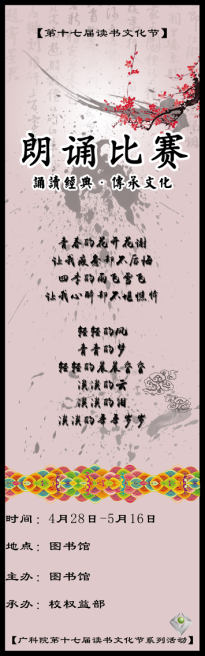 【第十七届读书文化节】
朗诵比赛
誦讀經典·傳承文化
青春的花开花谢
让我疲惫却不后悔
四季的雨飞雪飞
让我心醉却不堪憔悴
轻轻的风
青青的梦
轻轻的晨晨昏昏
淡淡的云
淡淡的泪
淡淡的年年岁岁
时间：4月28日-5月16日
地点：图书馆
主办：图书馆
承办：校权益部
【广科院第十七届读书文化节系列活动】